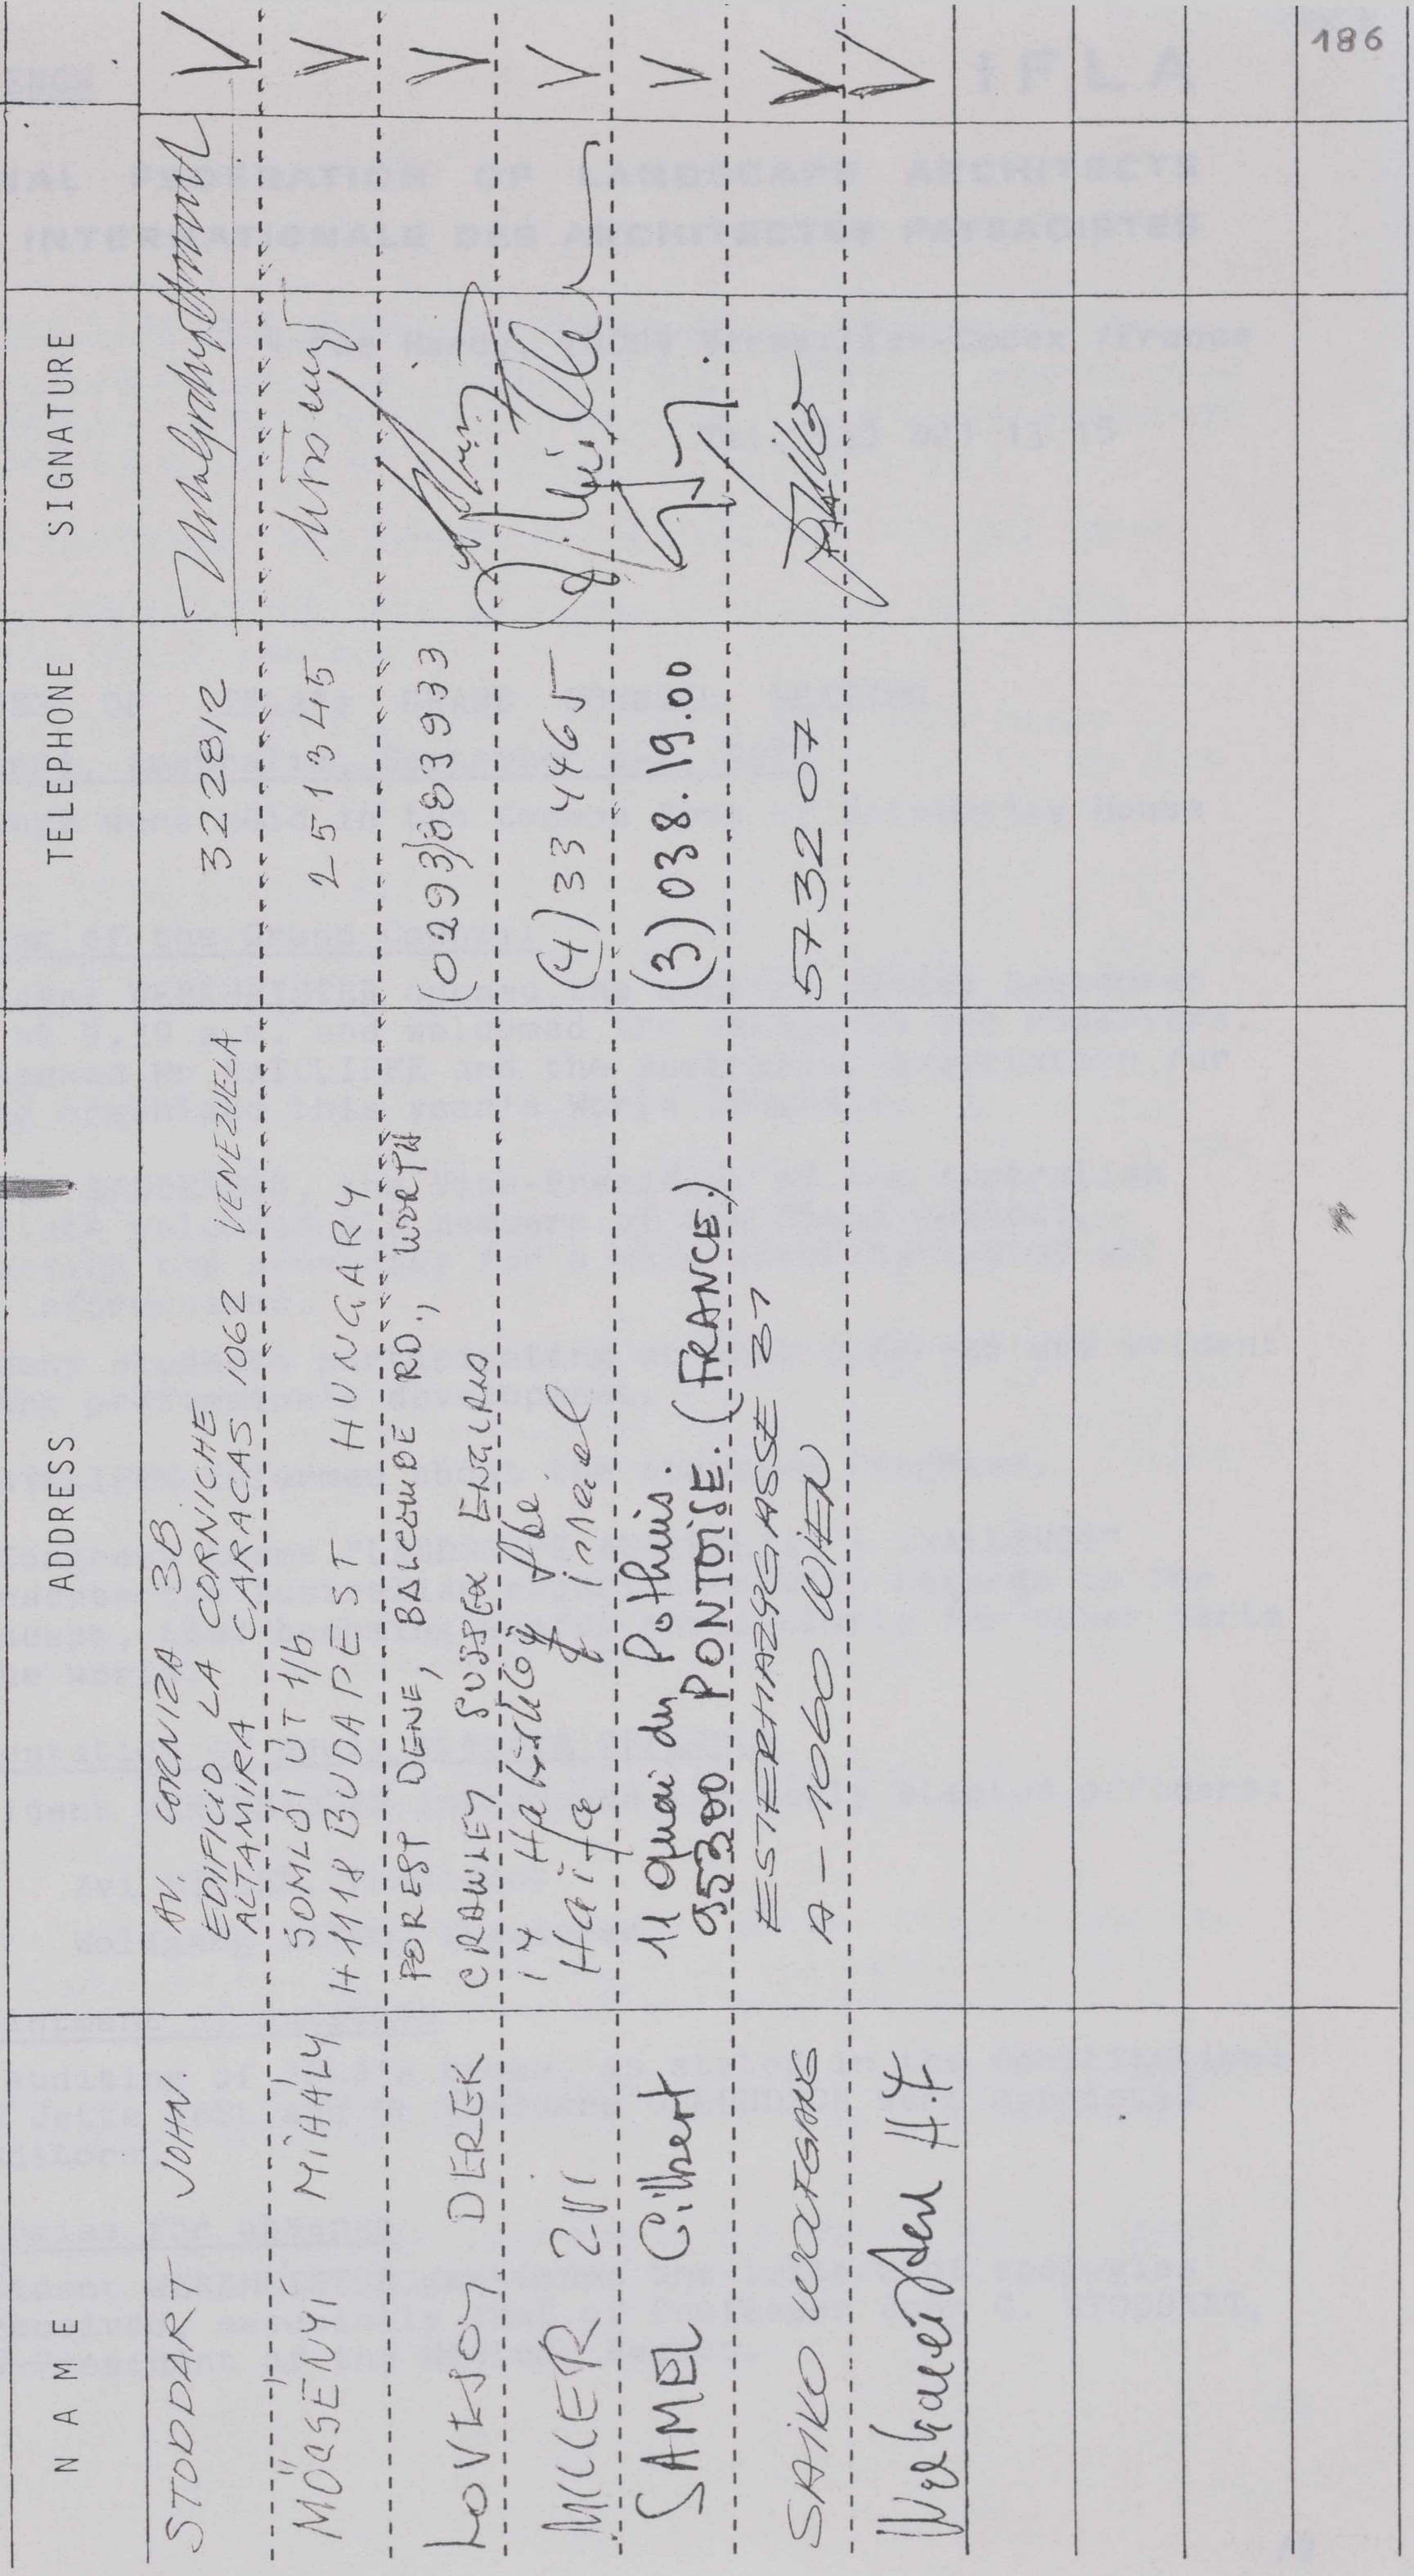 NAME ADDRESS TELEPHONE SIGNATURE
STODDART JOHN.
AV. CORNIZA 3B
EDIFICIO LA CORNICHE
ALTAMIRA CARACAS 1062 VENEZUELA
322812
MÖCSÉNYI MIHÁLY
SOMLÓI ÚT 1/b
H1118 BUDAPEST HUNGARY
251345
LOVEJOY DEREK
FOREST DENE, BALCOMBE RD., WORTH
CRAWLEY SUSSEX ENGLAND
(0293)883933
MILLER ZVI
14
Haifa israel
(4) 334465
SAMEL Gilbert
11 quai du Pothuis.
95300 PONTOISE. (FRANCE.)
(3) 038.19.00
SAIKO WOLFGANG
ESTERHAZYGASSE 31
A-1060 WIEN
573207
H.F
186
IFLA